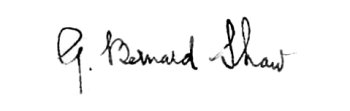 G. Bernard Shaw